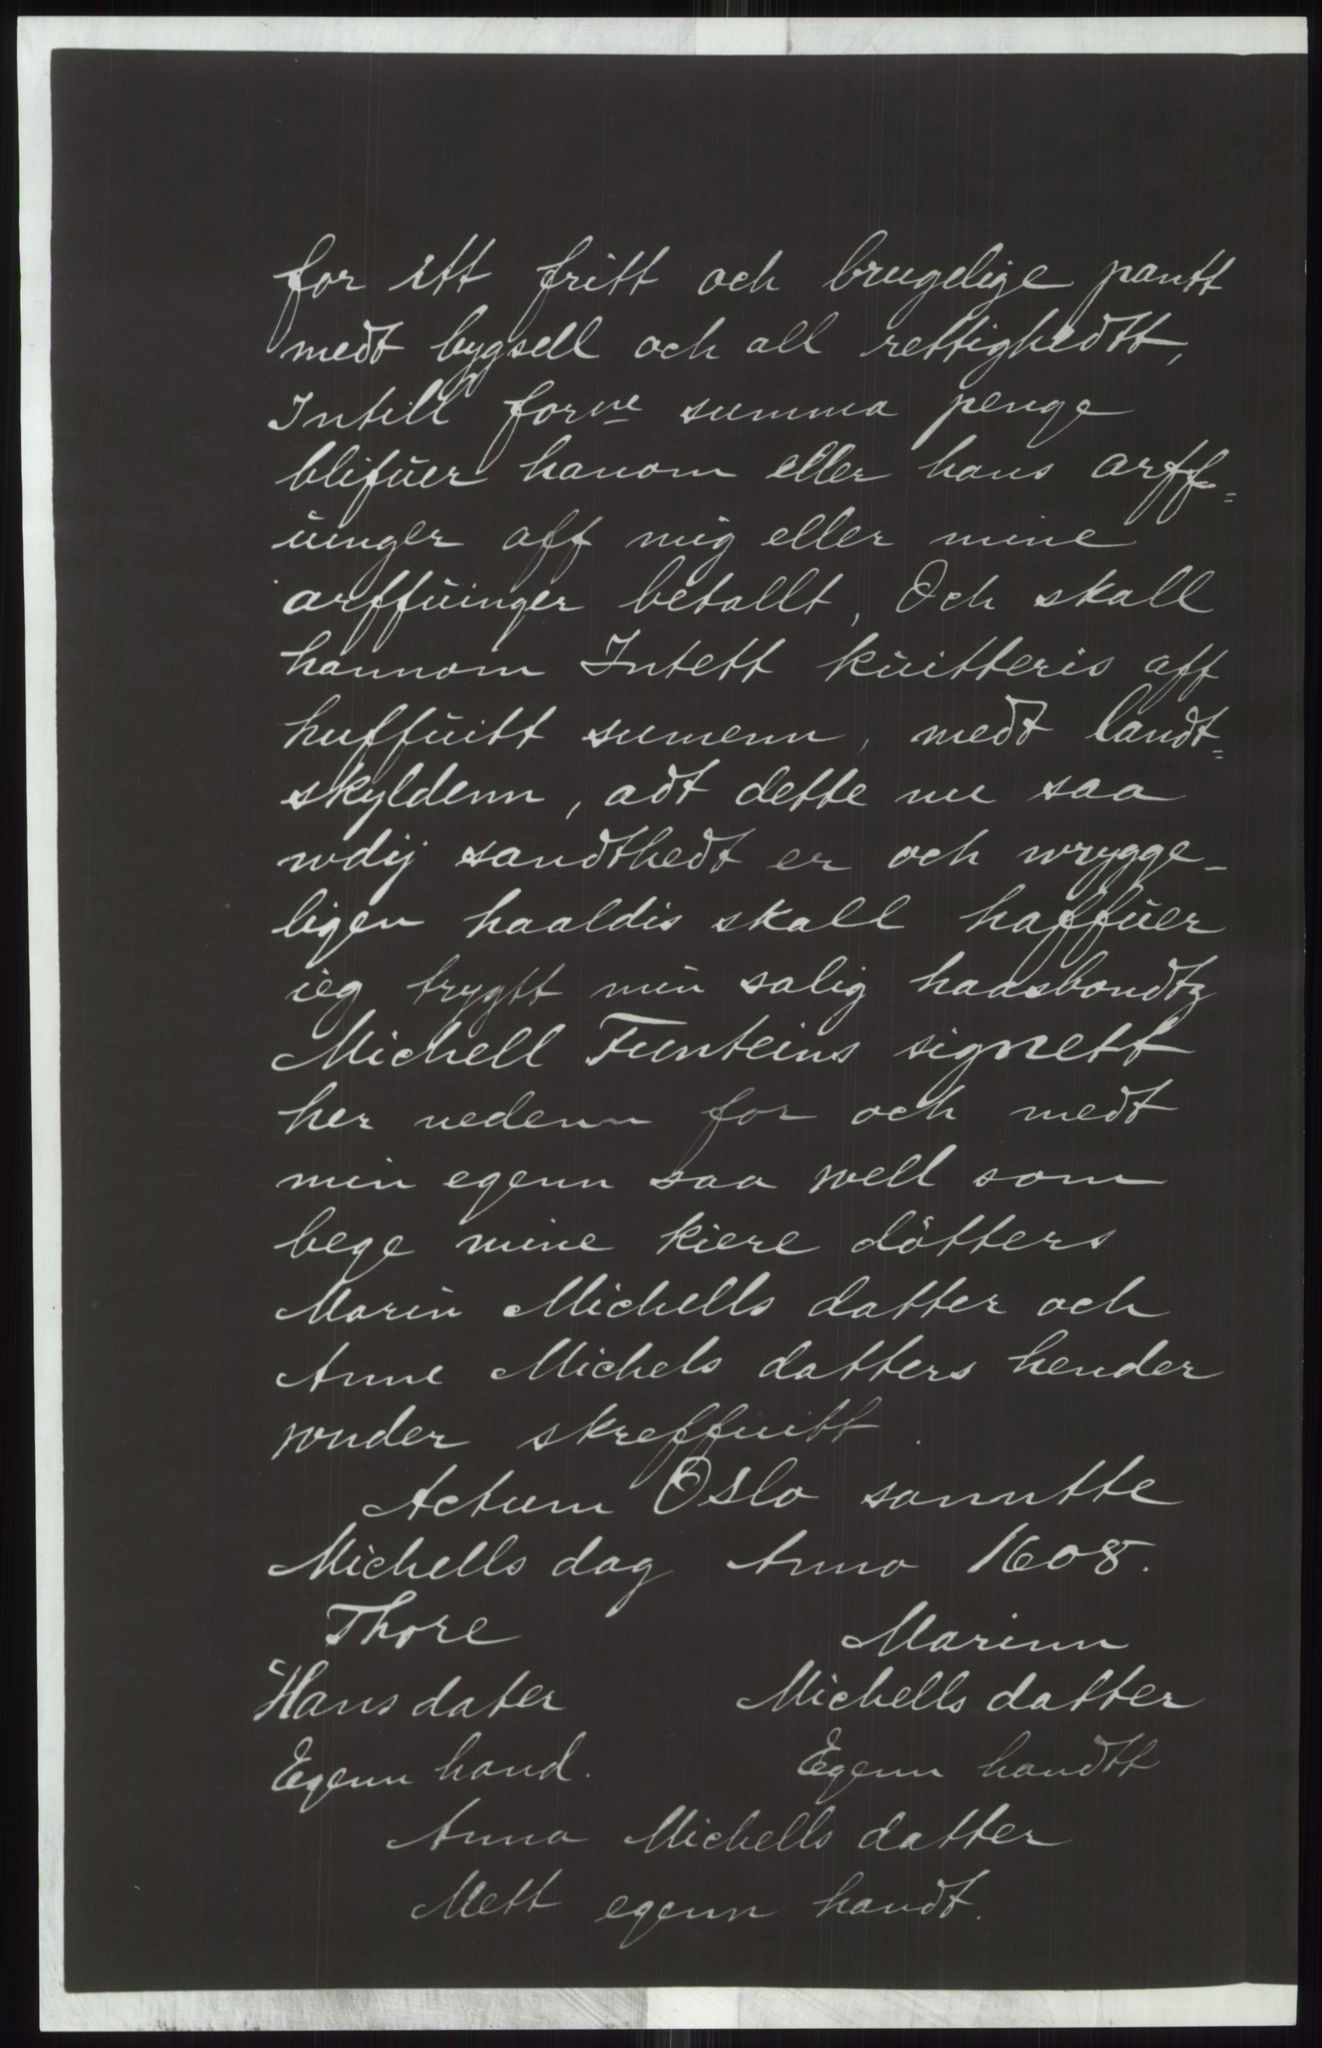 for itt fritt och brugelige pantt
medt bygsell och all rettighedtt,
Intill forne summa penge
blifŭer hanom eller hans arff=
ŭinger aff mig eller mine
arffŭinger betallt, Och skall
hannom Intett kŭitteris aff
huffŭitt sumenn, medt landt=
skyldenn, adt dette nu saa
wdij sandthedt er och wrygge-
ligen haaldis skall haffŭer
ieg trygtt min salig haasbondtz
Michell Funteins signett
her nedenn for och medt
min egenn saa well som
bege mine kiere dötters
Marin Michells datter och
Anne Michels datters hender
wnder skreffuitt.
Actum Oslo sanntte
Michells dag Anno 1608.
Thore Marinn
Hans dater Michells datter
Egenn hand. Egenn handtt
Anna Michells datter
Mett egenn handt.